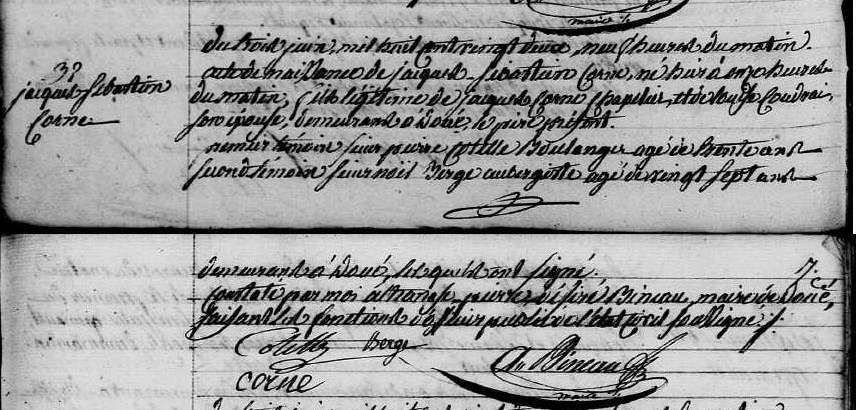 maire
39
jacques Sébastien
Corne
du trois juin mil huit cent vingt deux, neuf heures du matin.
acte de naissance de jacques Sébastien Corne, né hier à onze heures
du matin, fils légitime de jacques Corne Chapelier, et de louise Coudrai
son épouse, demeurant à doué, le père présent.
premier témoin sieur pierre Boulanger agé de trente ans
second témoin sieur noël Berge aubergiste agé de vingt sept ans
7.
demeurant à doué, lesquels ont signé.
Constaté par moi pierre désiré Bineau, maire de Doué,
faisant les fonctions d'officier public de l'état civil soussigné
Berge
Bineau
Corne
maire